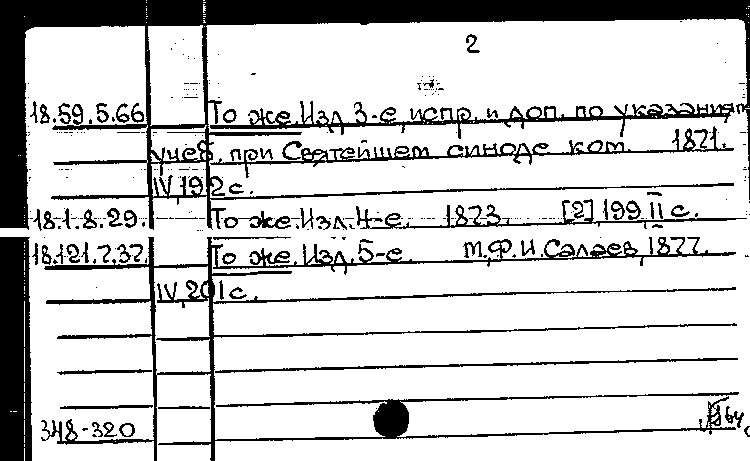 2
18.59.5.66 То же. Изд. 3-е, испр. и доп. по указаниям
учеб. при Святейшем синоде ком. 1871.
IV, 192 с.
18.1.8.29. То же. Изд. 4-е. 1873. [2], 199, II с.
18.121.7.37. То же. Изд. 5-е. М., Ф.И. Салаев, 1877.
IV, 201 с.
348-320